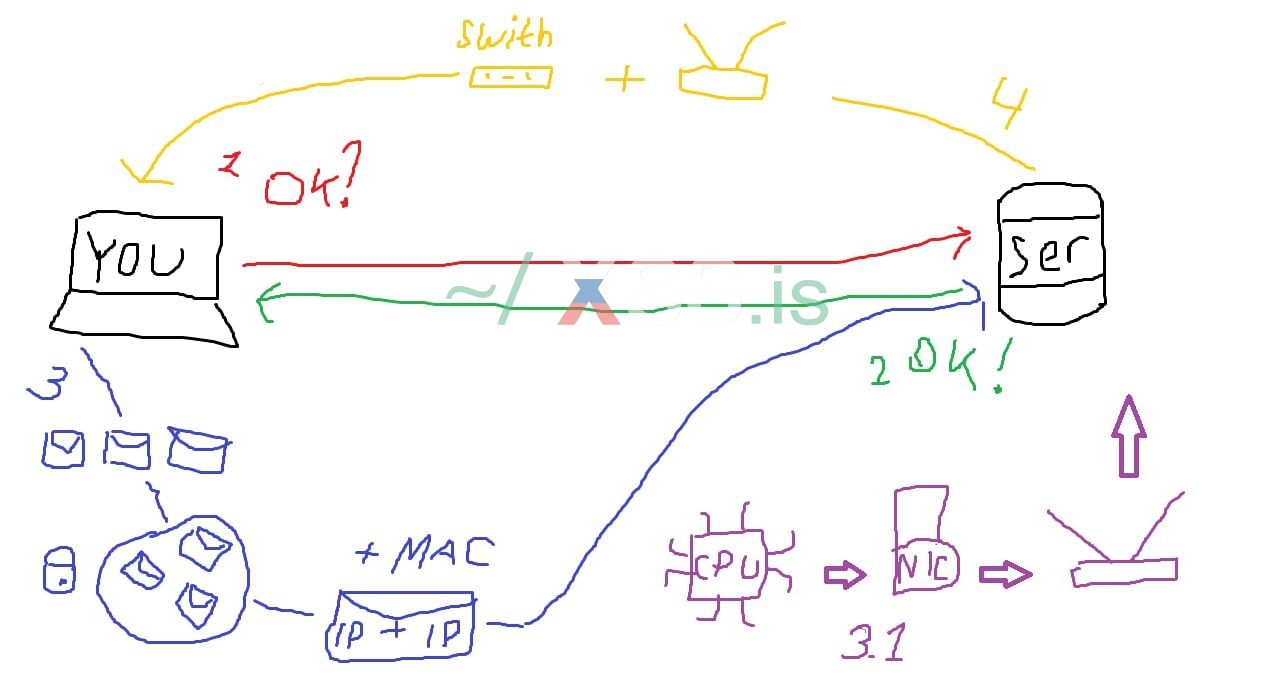 swith
+
4
1 OK?
YOU
ser
~/XSS.is
2 OK!
3
+ MAC
IP + IP
CPU
NIC
3.1